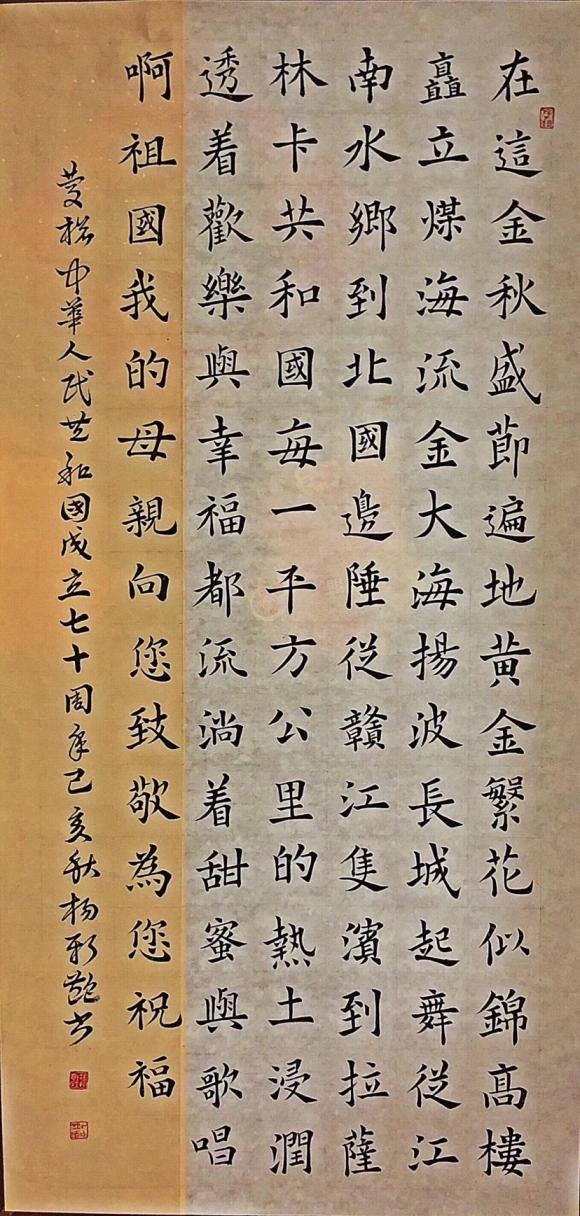 在這金秋盛節遍地黄金繁花似錦髙樓
矗立煤海流金大海揚波長城起舞從江
南水鄉到北國邊陲從贛江隻濱到拉薩
林卡共和國每一平方公里的熱土浸潤
透着歡樂與幸福都流淌着甜蜜與歌唱
啊祖國我的母親向您致敬為您祝福
慶祝中華人民共和國成立七十周年己亥秋楊新艷書